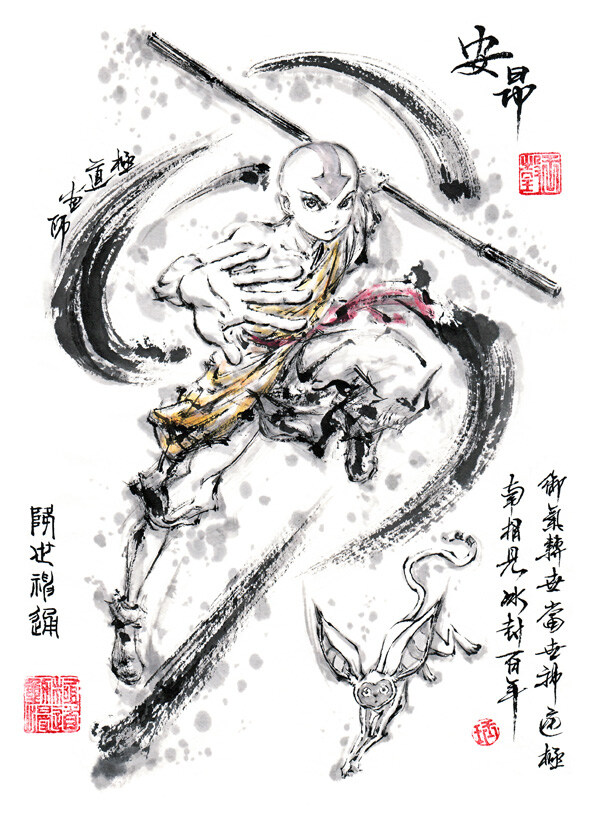 安昂
極道宗師
御氣轉世當世神極
南相見冰封百年
降世神通